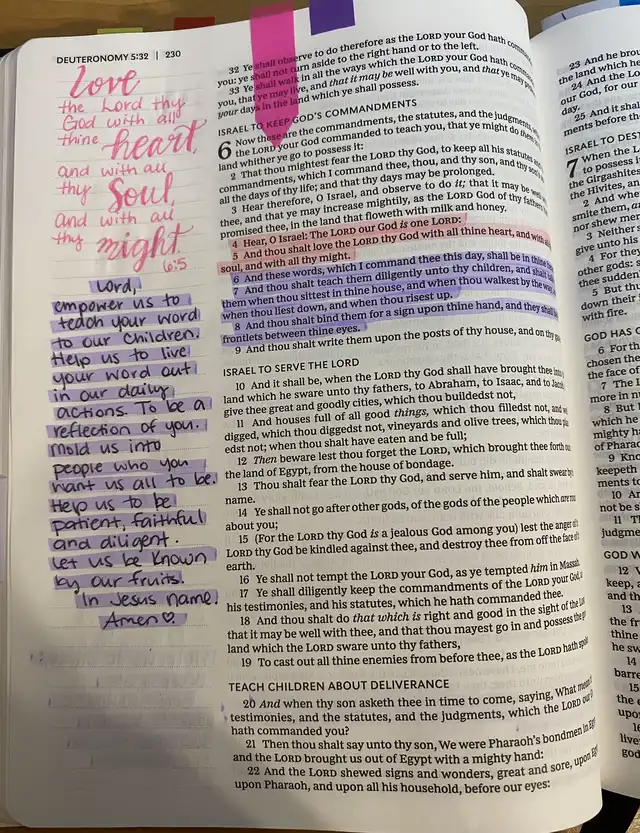 DEUTERONOMY 5:32 | 230
love
the Lord thy
God with all
thine heart,
and with all
thy Soul,
and with all
thy might.
6:5
Lord,
empower us to
teach your word
to our children.
Help us to live
your word out
in our daily
actions. To be a
reflection of you.
Mold us into
people who you
want us all to be.
Help us to be
patient, faithful
and diligent.
Let us be known
by our fruits.
In Jesus name.
Amen♡
32 Ye shall observe to do therefore as the LORD your God hath
you: ye shall not turn aside to the right hand or to the left.
33 Ye shall walk in all the ways which the LORD your God
you, that ye may live, and that it may be well with you, and that ye may
your days in the land which ye shall possess.
ISRAEL TO KEEP GOD'S COMMANDMENTS
6 Now these are the commandments, the statutes, and the judgments,
the LORD your God commanded to teach you, that ye might do them in
land whither ye go to possess it:
2 That thou mightest fear the LORD thy God, to keep all his statutes
commandments, which I command thee, thou, and thy son, and thy son's
all the days of thy life; and that thy days may be prolonged.
3 Hear therefore, O Israel, and observe to do it; that it may be well
thee, and that ye may increase mightily, as the LORD God of thy fathers
promised thee, in the land that floweth with milk and honey.
4 Hear, O Israel: The LORD our God is one LORD:
5 And thou shalt love the LORD thy God with all thine heart, and with all
soul, and with all thy might.
6 And these words, which I command thee this day, shall be in thine
7 And thou shalt teach them diligently unto thy children, and shalt
them when thou sittest in thine house, and when thou walkest by the
when thou liest down, and when thou risest up.
8 And thou shalt bind them for a sign upon thine hand, and they shall
frontlets between thine eyes.
9 And thou shalt write them upon the posts of thy house, and on thy
ISRAEL TO SERVE THE LORD
10 And it shall be, when the LORD thy God shall have brought thee into
land which he sware unto thy fathers, to Abraham, to Isaac, and to Jacob,
give thee great and goodly cities, which thou buildedst not,
11 And houses full of all good things, which thou filledst not, and
digged, which thou diggedst not, vineyards and olive trees, which thou
edst not; when thou shalt have eaten and be full;
12 Then beware lest thou forget the LORD, which brought thee forth
the land of Egypt, from the house of bondage.
13 Thou shalt fear the LORD thy God, and serve him, and shalt swear by
name.
14 Ye shall not go after other gods, of the gods of the people which are
about you;
15 (For the LORD thy God is a jealous God among you) lest the anger of
LORD thy God be kindled against thee, and destroy thee from off the face of
earth.
16 Ye shall not tempt the LORD your God, as ye tempted him in Massah.
17 Ye shall diligently keep the commandments of the LORD your God,
his testimonies, and his statutes, which he hath commanded thee.
18 And thou shalt do that which is right and good in the sight of the
that it may be well with thee, and that thou mayest go in and possess the
land which the LORD sware unto thy fathers,
19 To cast out all thine enemies from before thee, as the LORD hath
TEACH CHILDREN ABOUT DELIVERANCE
20 And when thy son asketh thee in time to come, saying, What mean
testimonies, and the statutes, and the judgments, which the LORD our
hath commanded you?
21 Then thou shalt say unto thy son, We were Pharaoh's bondmen in
and the LORD brought us out of Egypt with a mighty hand:
22 And the LORD shewed signs and wonders, great and sore, upon
upon Pharaoh, and upon all his household, before our eyes:
23 And he
the land which he
24 And the
our God, for our
day.
25 And it shall
ments before the
ISRAEL TO
7 When the
to possess
the Girgashites
the Hivites, and
2 And
smite them,
nor shew
3 Neither
give unto his
4 For they
other gods:
thee
5 But thus
down their
with fire.
GOD HAS
6 For
chosen the
the face of
7 The
more in
8 But
which he
mighty
of Pharaoh
9 Know
keepeth
ments to
10 And
not be
11
judgments
GOD
12
keep,
and
13
the
thine
he